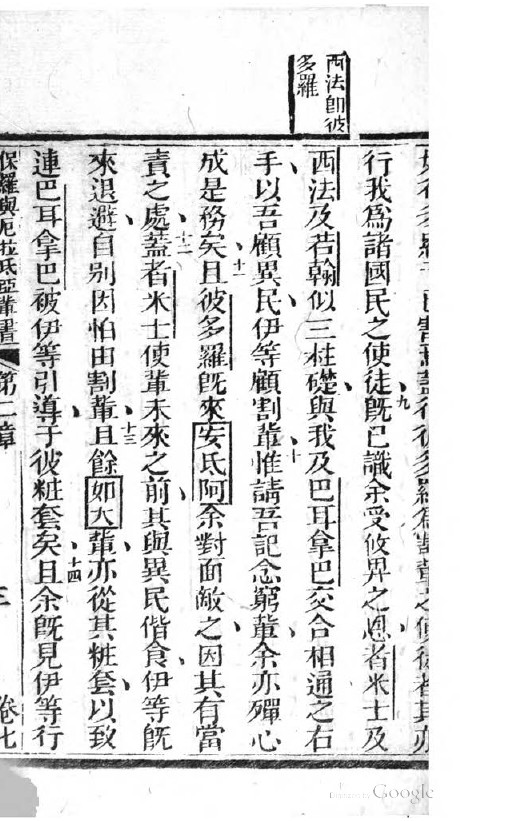 西法卽彼
多羅
行我爲諸國民之使徒旣已識余受攸畀之恩者米士及
西法及若翰似三柱礎與我及巴耳拿巴交合相通之右
手以吾顧異民伊等顧割輩惟請吾記念窮輩余亦殫心
成是務矣且彼多羅旣來安氏阿余對面敵之因其有當
責之處蓋者米士使輩未來之前其與異民偕食伊等旣
來退避自别因怕由割輩且餘如大輩亦從其粧套以致
連巴耳拿巴被伊等引導于彼粧套矣且余旣見伊等行
九
十
十一
十二
十三
十四
第二章
三
卷七
Google